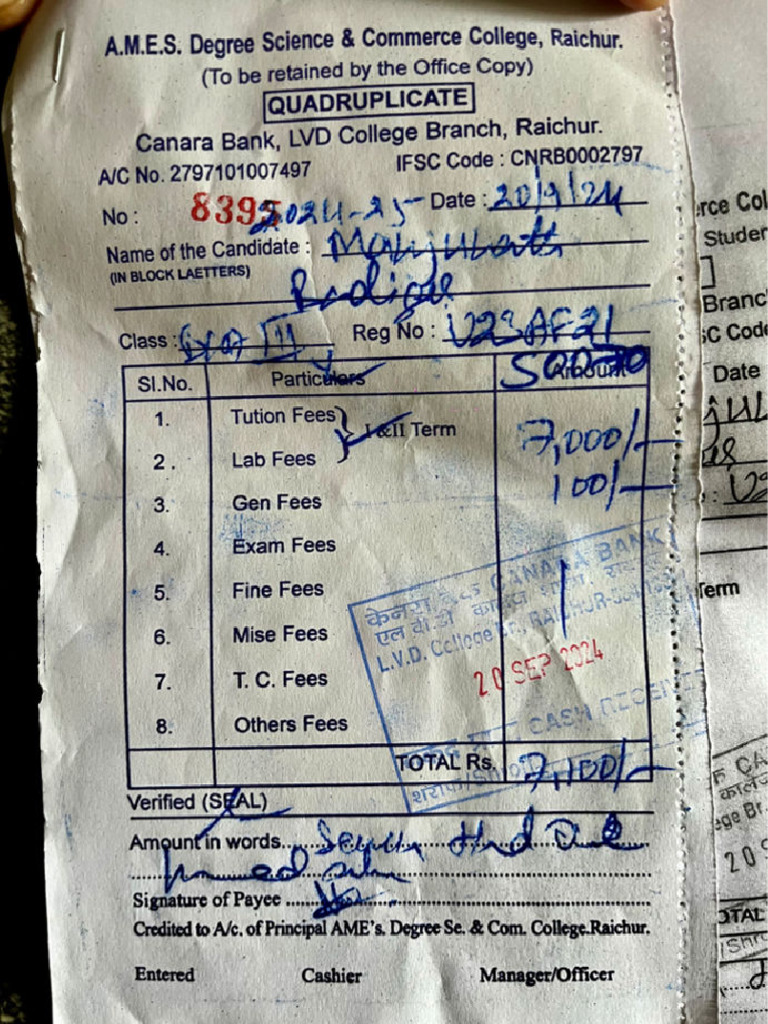 A.M.E.S. Degree Science & Commerce College, Raichur.
(To be retained by the Office Copy)
QUADRUPLICATE
Canara Bank, LVD College Branch, Raichur.
A/C No. 2797101007497 IFSC Code : CNRB0002797
No : 8395 2024-25 Date : 20/9/24
Name of the Candidate : Manjunath
(IN BLOCK LAETTERS)
Badiger
Class : III Reg No : U23AF21
Sl.No. Particulers Amount
1. Tution Fees
I & II Term 7,000/-
2. Lab Fees
100/-
3. Gen Fees
4. Exam Fees
5. Fine Fees
6. Mise Fees
7. T. C. Fees
8. Others Fees
केनरा बैंक CANARA BANK
एल वी डी कालेज
L.V.D. College Br., RAICHUR
20 SEP 2024
CASH RECEIVED
TOTAL Rs. 7,100/-
Verified (SEAL)
Amount in words
Signature of Payee
Credited to A/c. of Principal AME's. Degree Se. & Com. College.Raichur.
Entered Cashier Manager/Officer
rce Col
Studer
Branc
SC Code
Date
Term
20 S
OTAL